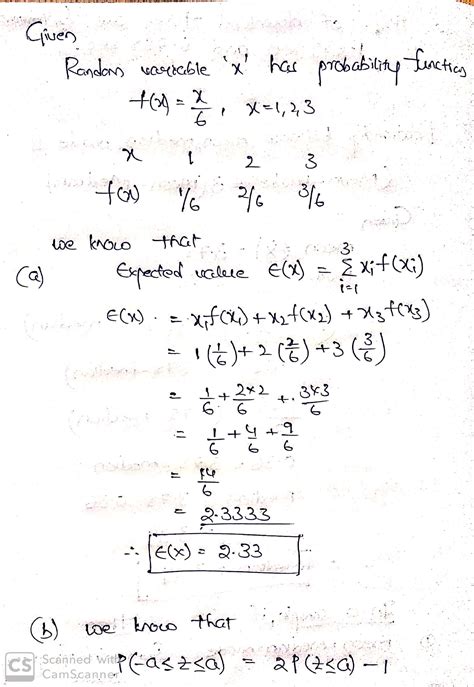 Given
Random variable 'x' has probability function
f(x) = x/6 , x=1,2,3
x 1 2 3
f(x) 1/6 2/6 3/6
we know that
(a) Expected value E(x) = 3 Σ i=1 xi f(xi)
E(x) . = x1 f(x1) + x2 f(x2) + x3 f(x3)
= 1(1/6) + 2(2/6) + 3(3/6)
= 1/6 + 2×2/6 + 3×3/6
= 1/6 + 4/6 + 9/6
= 14/6
= 2.3333
∴ E(x) = 2.33
(b) we know that
P(-a≤z≤a) = 2P(z≤a) - 1
CS Scanned with
CamScanner